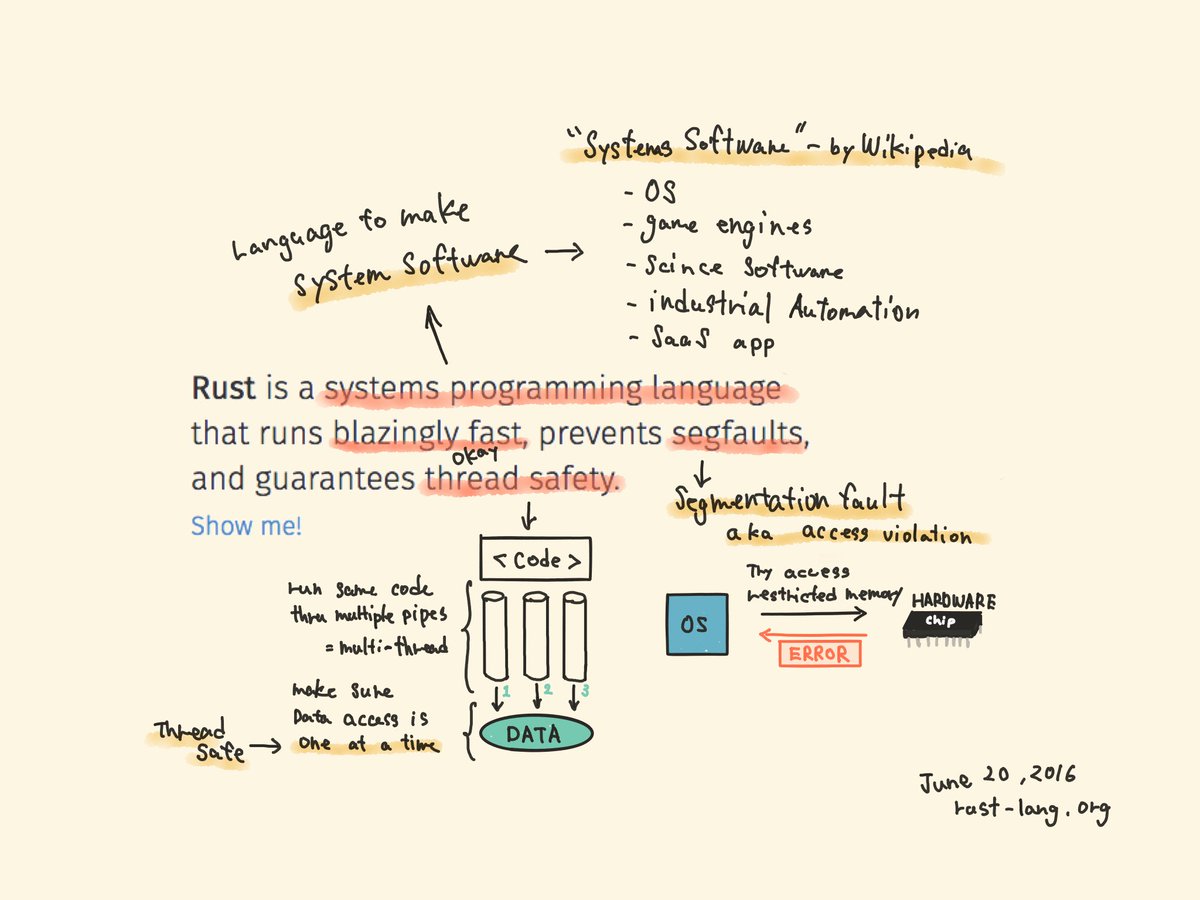 "Systems Software" - by Wikipedia
- OS
- game engines
- Scince Software
- industrial Automation
- SaaS app
Language to make
System Software
Rust is a systems programming language
that runs blazingly fast, prevents segfaults,
okay
and guarantees thread safety.
Show me!
Segmentation fault
aka access violation
Try access
restricted memory
OS
HARDWARE
chip
ERROR
<Code>
run same code
thru multiple pipes
= multi-thread
1 2 3
make sure
Data access is
one at a time
DATA
Thread
Safe
June 20, 2016
rust-lang.org